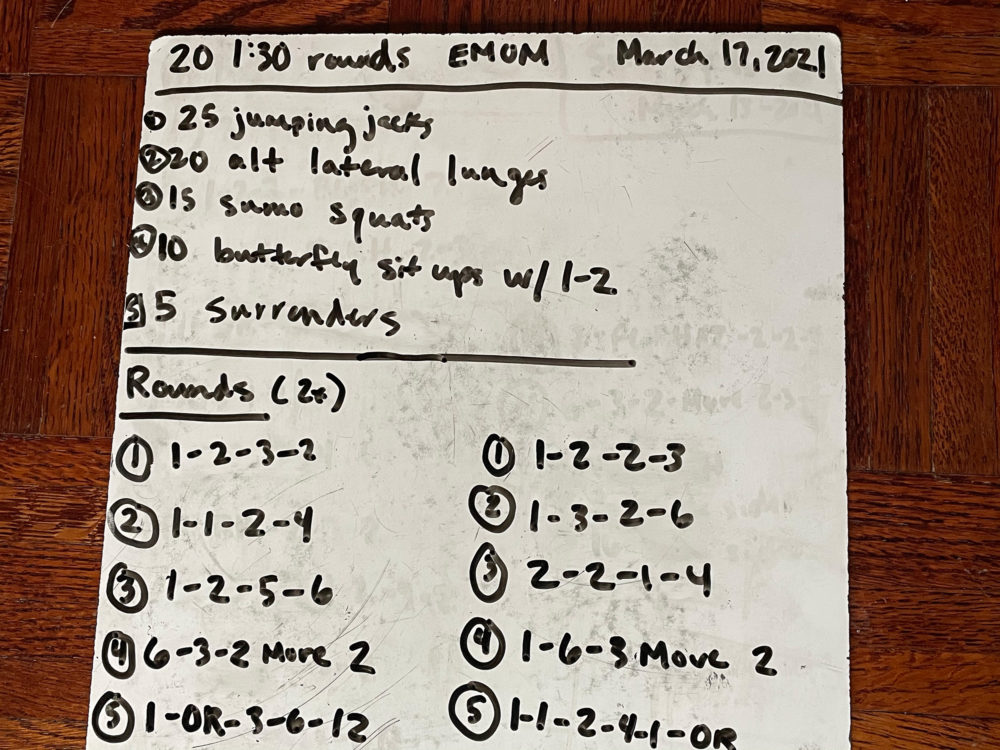 20 1:30 rounds EMOM March 17, 2021
① 25 jumping jacks
② 20 alt lateral lunges
③ 15 sumo squats
④ 10 butterfly sit ups w/ 1-2
⑤ 5 surrenders
Rounds (2x)
① 1-2-3-2
② 1-1-2-4
③ 1-2-5-6
④ 6-3-2 Move 2
⑤ 1-OR-3-6-12
① 1-2-2-3
② 1-3-2-6
③ 2-2-1-4
④ 1-6-3 Move 2
⑤ 1-1-2-4-1-OR